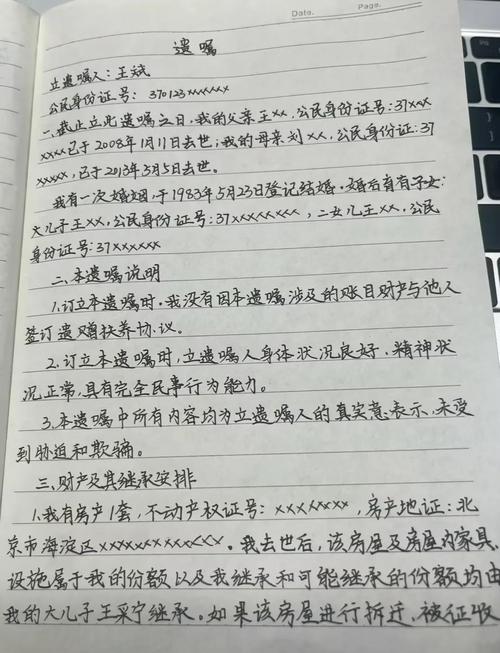 Date.    Page.
遗嘱
立遗嘱人：王斌
公民身份证号：370123xxxxxxx
一、截止立此遗嘱之日，我的父亲王xx，公民身份证号：37xxx
xxxx已于2008年1月11日去世；我的母亲刘xx，公民身份证：37
xxxxx，已于2013年3月5日去世。
我有一次婚姻，于1983年5月23日登记结婚。婚后育有子女：
大儿子王xx，公民身份证号：37xxxxxxxx，二女儿王xx，公民
身份证号：37xxxxxx
二、本遗嘱说明
1.订立本遗嘱时，我没有因本遗嘱涉及的账目财产与他人
签订遗赠扶养协议。
2.订立本遗嘱时，立遗嘱人身体状况良好，精神状
况正常，具有完全民事行为能力。
3.本遗嘱中所有内容均为立遗嘱人的真实意表示，未受
到胁迫和欺骗。
三、财产及其继承安排
1.我有房产1套，不动产权证号：xxxxxxxx，房产地证：北
京市海淀区xxxxxxxxxxxx。我去世后，该房屋及房屋内家具、
设施属于我的份额以及我继承和可能继承的份额均由
我的大儿子王采宁继承。如果该房屋进行拆迁、被征收